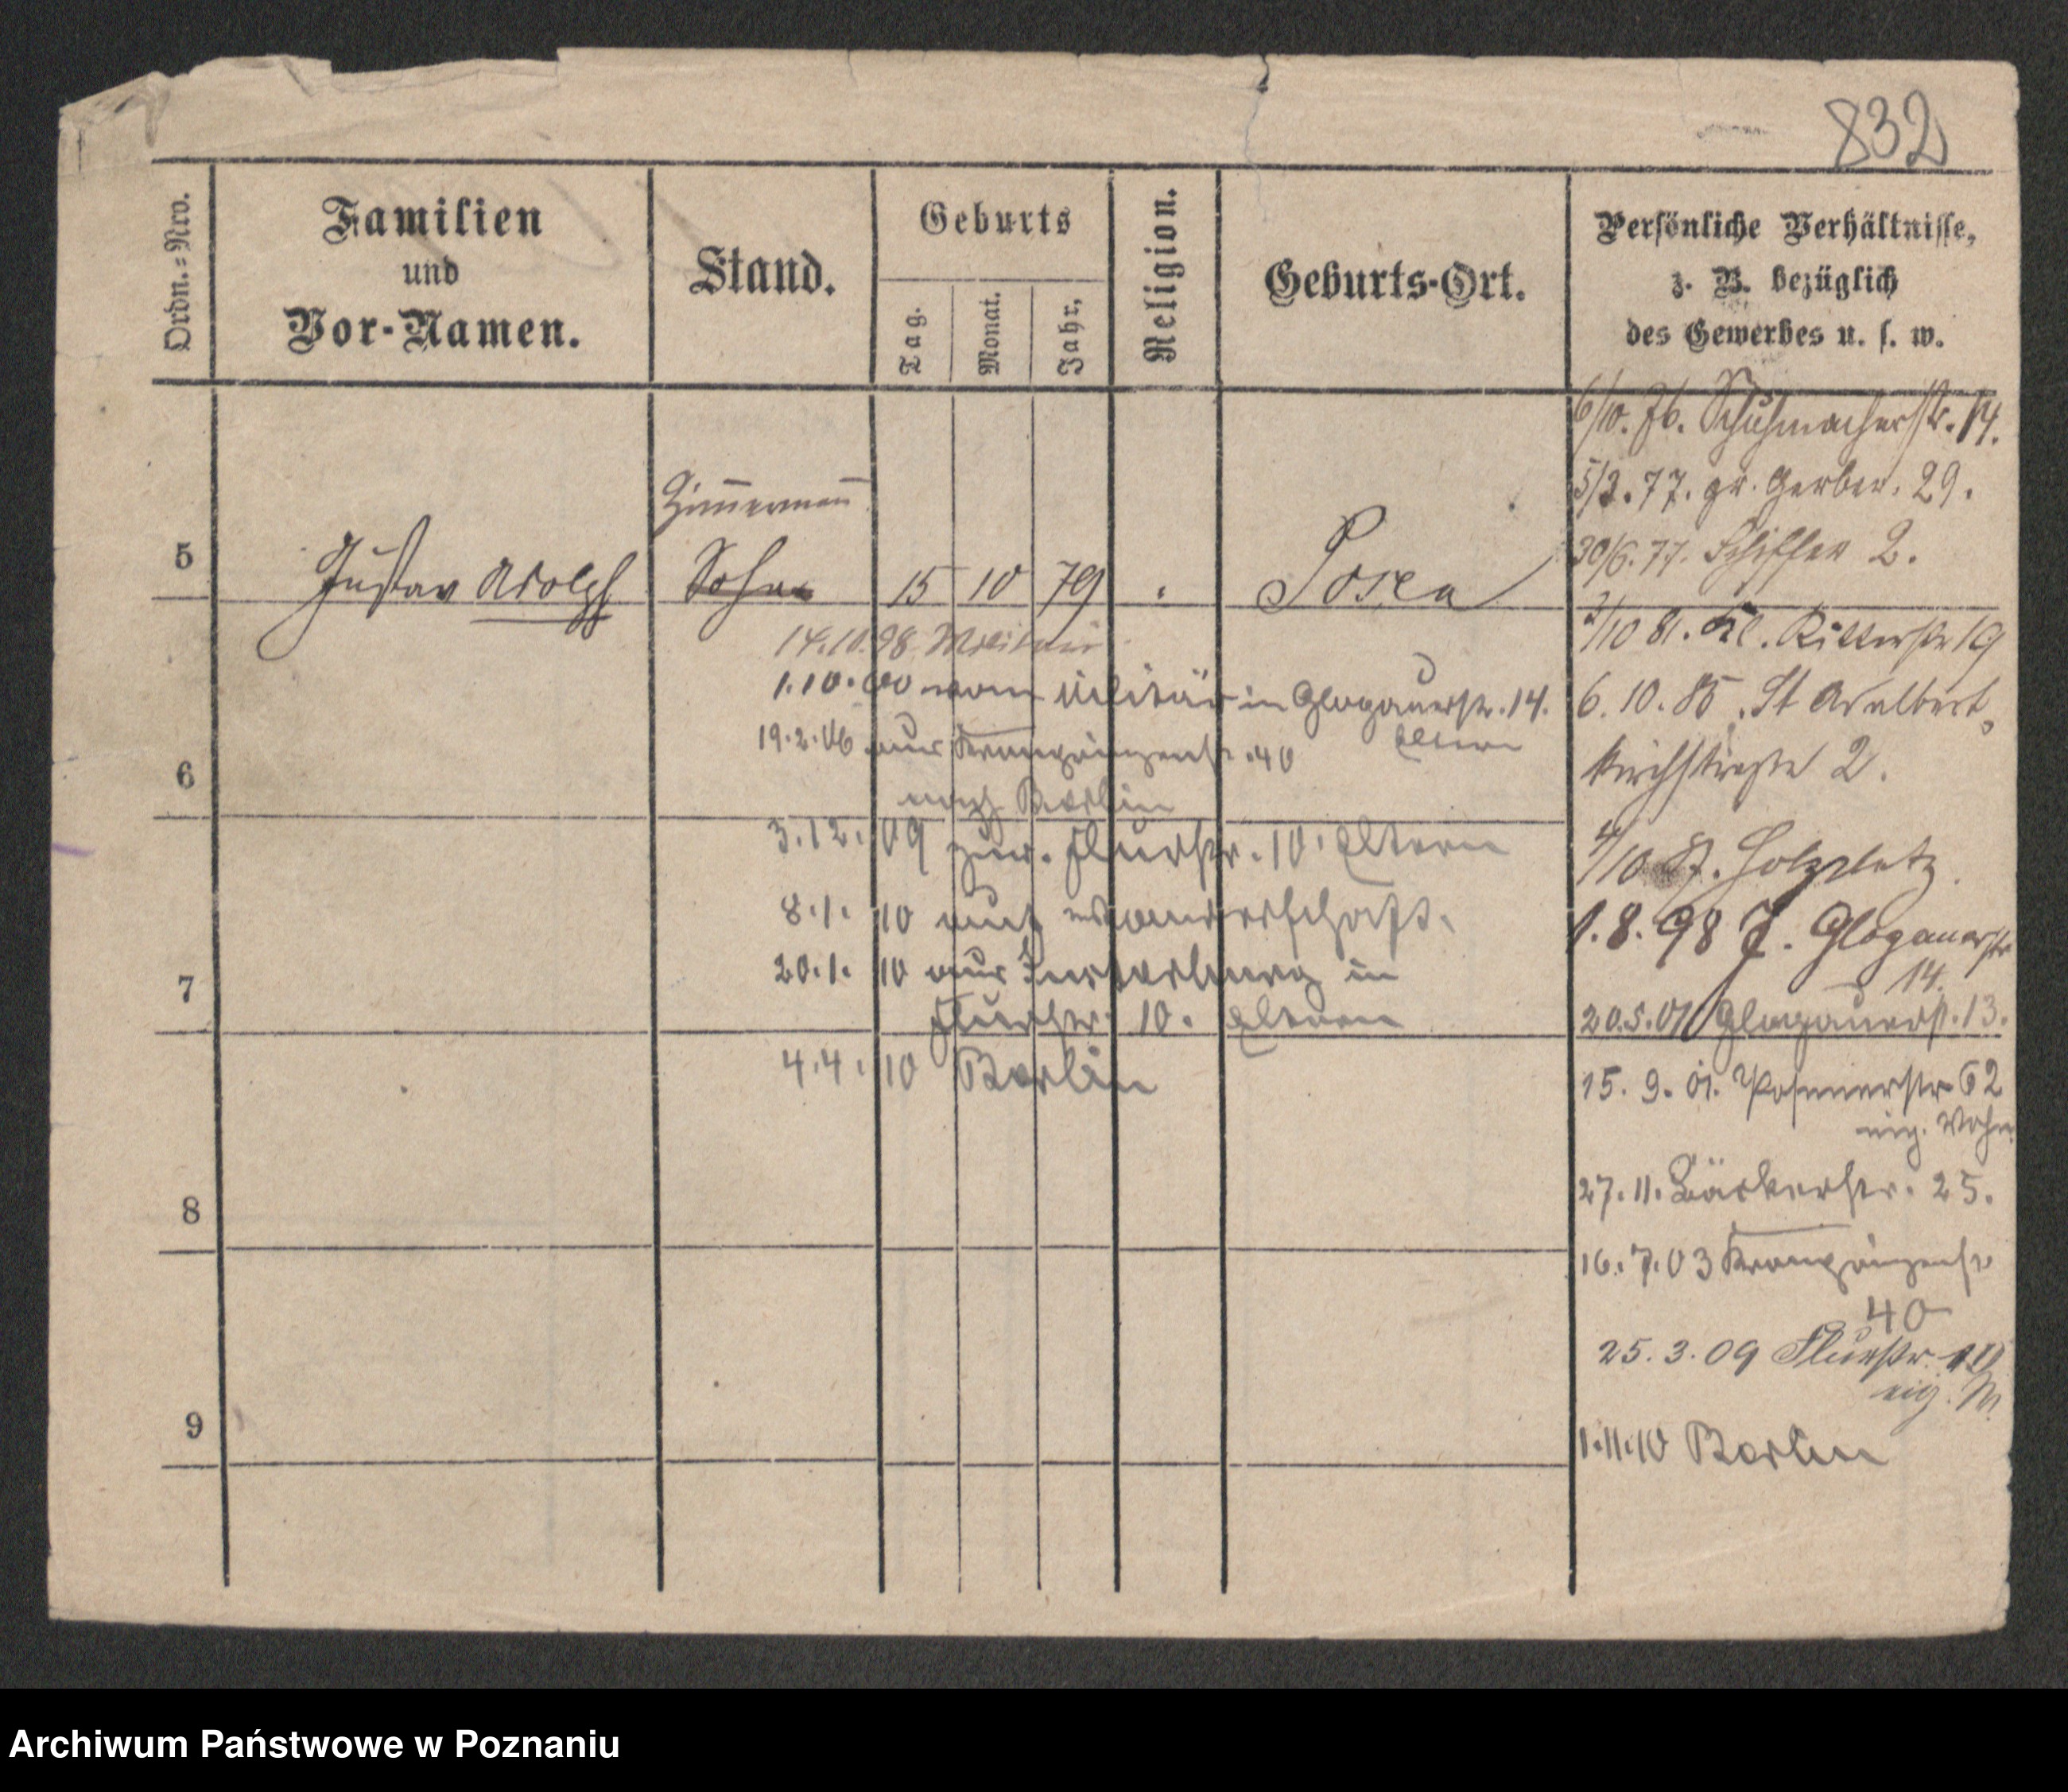 832
Ordn.=Nro.
Familien
und
Vor-Namen.
Stand.
Geburts
Tag.
Monat.
Jahr.
Religion.
Geburts-Ort.
Persönliche Verhältnisse,
z. B. bezüglich
des Gewerbes u. s. w.
5
Gustav Adolph
Zimmermann
Sohn
15 10 79
Posen
14.10.98
1.10.00 vom Militär in Glogauerstr. 14.
Eltern
19.2.06 aus Kronprinzenstr. 40
nach Berlin
6
3.12.09 zur. Flurstr. 10. Eltern
8.1.10 auf Wanderschaft.
20.1.10 aus Insterburg in
Flurstr. 10. Eltern
7
4.4.10 Berlin
8
9
6/10. 76. Schuhmacherstr. 14.
5/2. 77. gr. Gerber. 29.
30/6. 77. Schiffer 2.
2/10 81. Kl. Ritterstr 19
6. 10. 85. St Adalbert
kirchstraße 2.
4/10 87. Holzplatz.
1.8.98 J. Glogauerstr
14.
20.5.01 Glogauerstr. 13.
15. 9. 01. Posenerstr 62
eig. Wohn
27.11. Bäckerstr. 25.
16.7.03 Kronprinzenstr
40
25.3.09 Flurstr. 10
eig. W.
1.11.10 Berlin
Archiwum Państwowe w Poznaniu